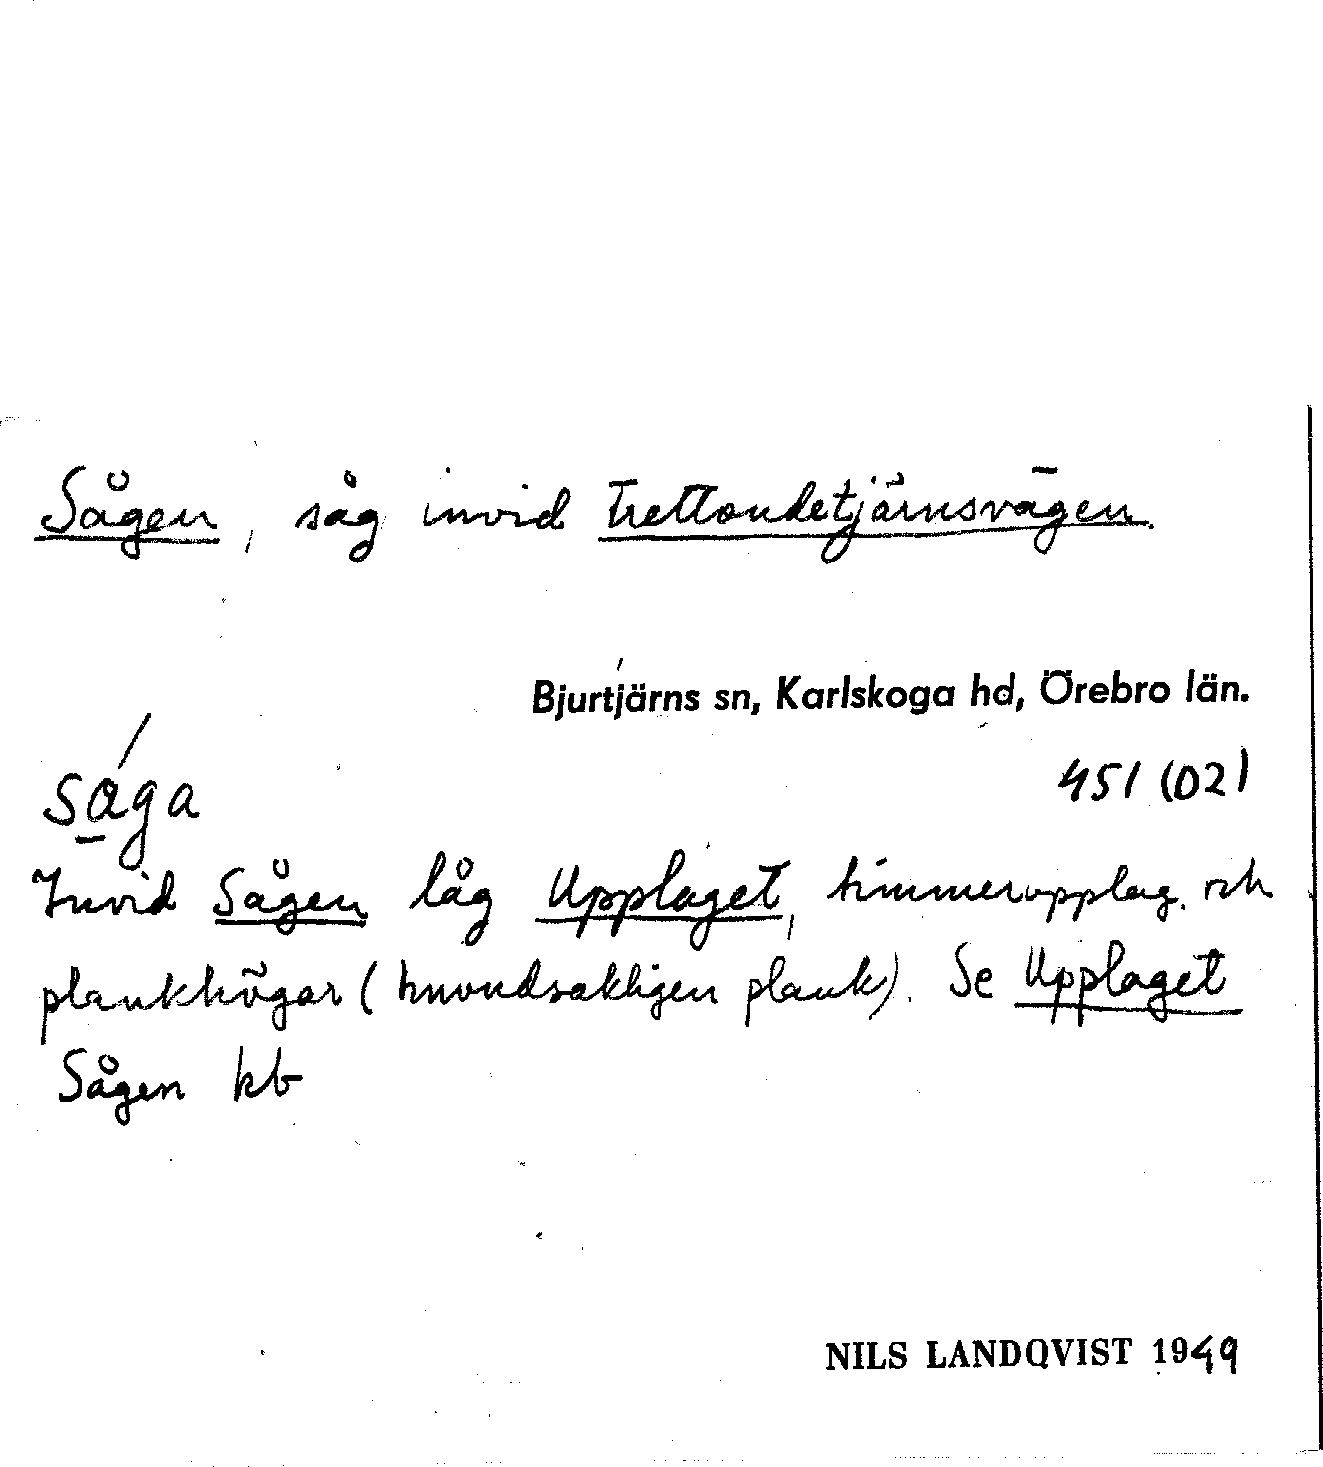 Sågen, såg invid Trettondetjärnsvägen.
Bjurtjärns sn, Karlskoga hd, Örebro län.
451 (02)
såga
Invid Sågen låg Upplaget, timmerupplag och
plankhögar (huvudsakligen plank). Se Upplaget
Sågen kb
NILS LANDQVIST 1949